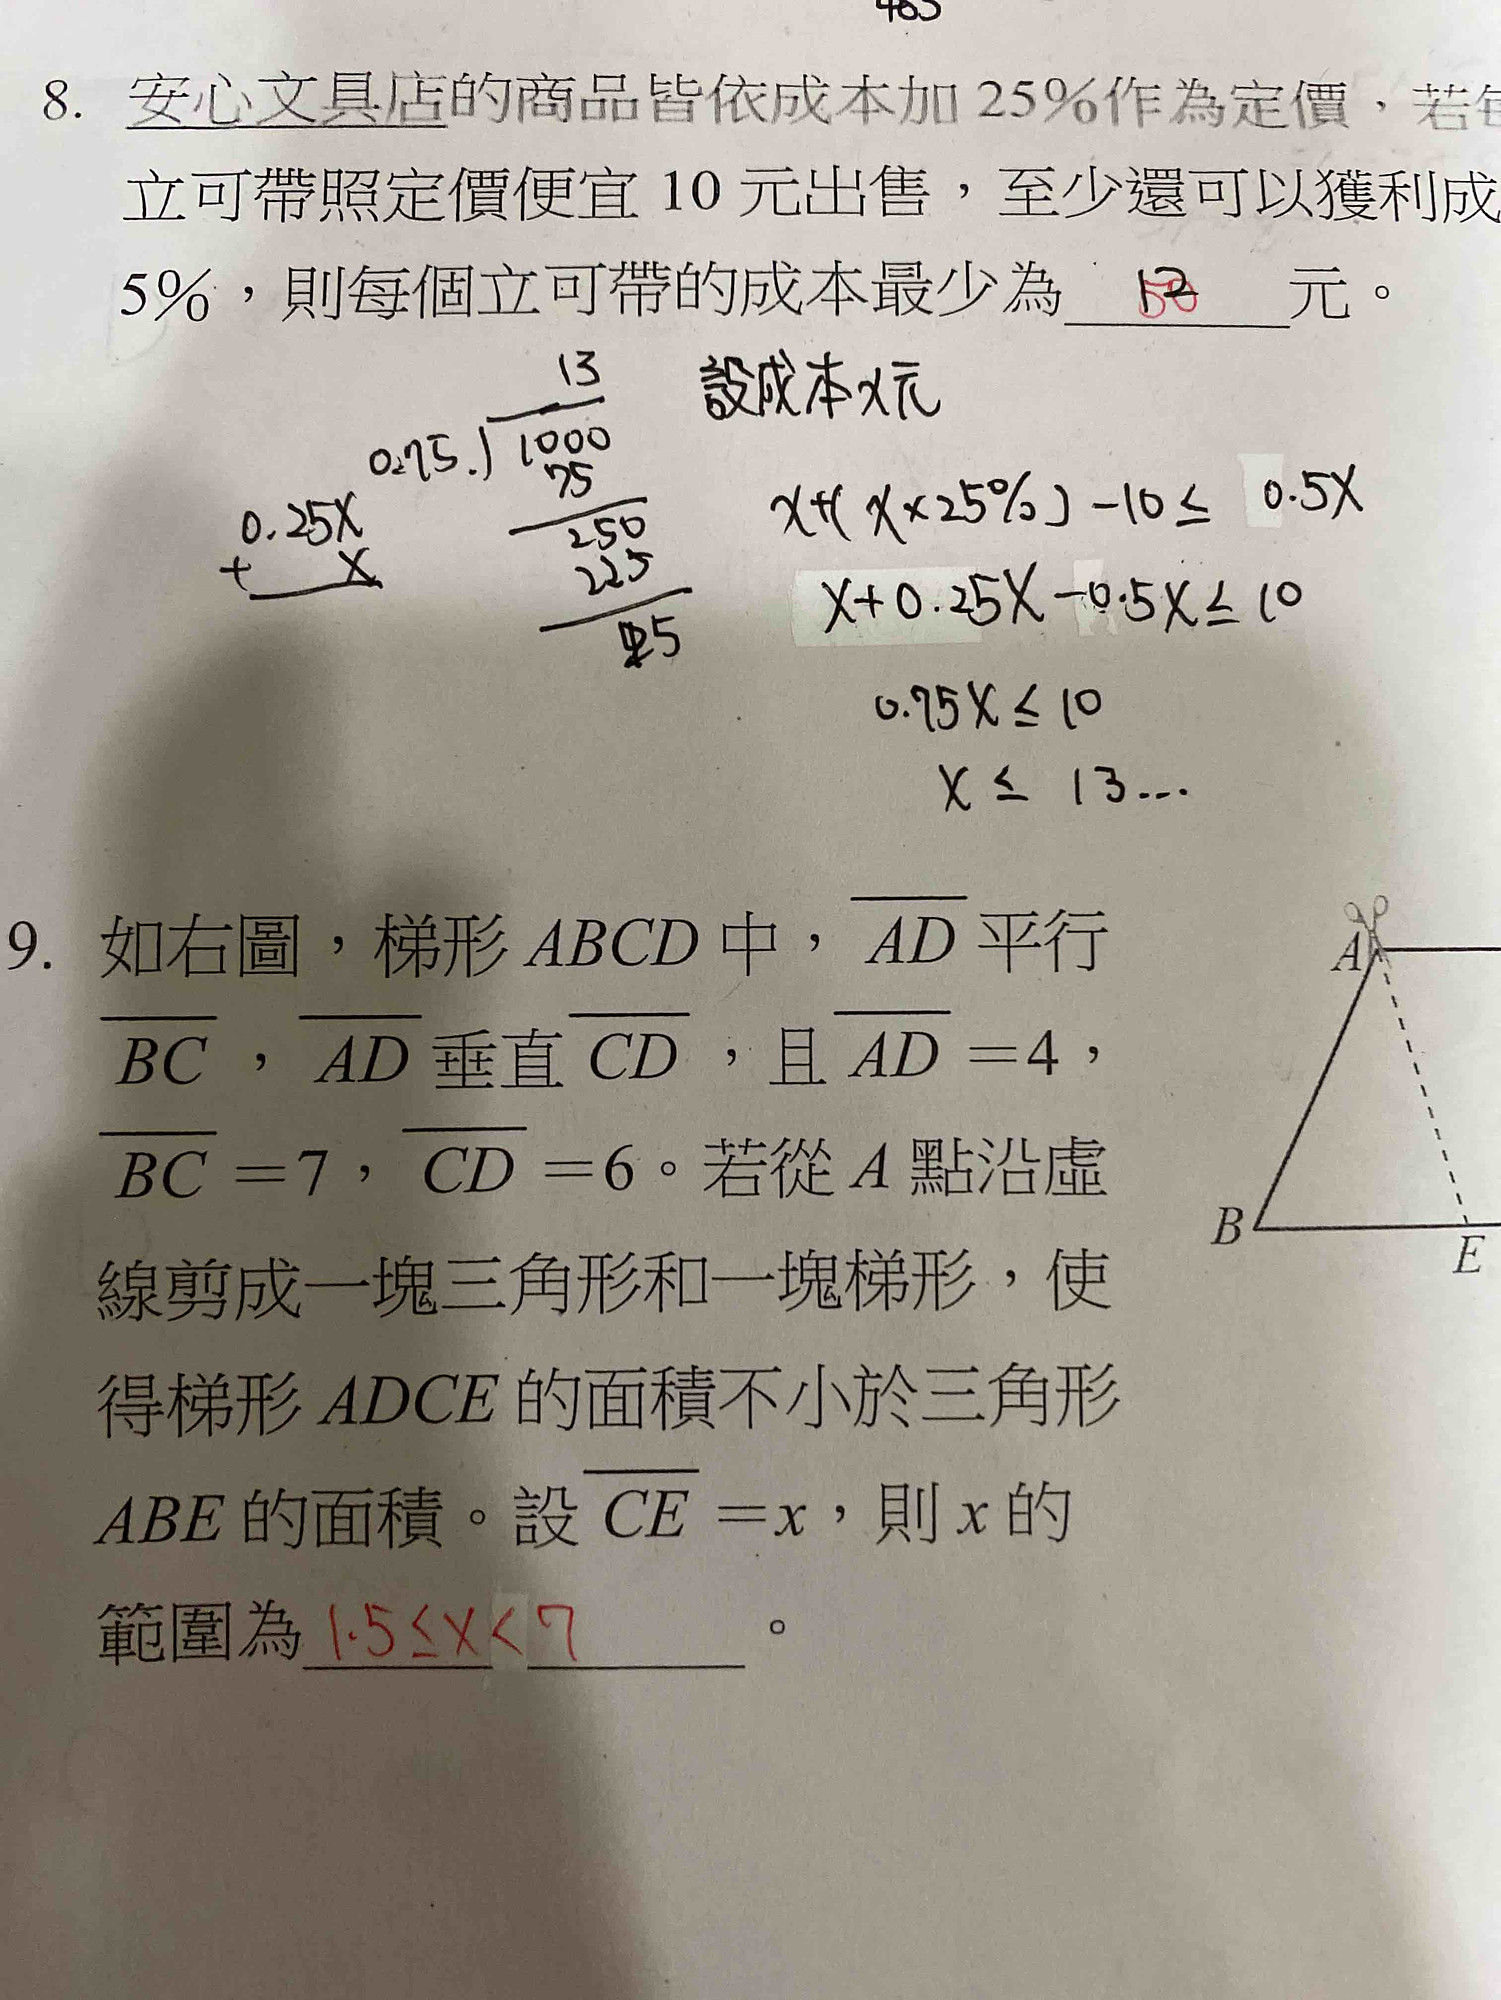 465
8. 安心文具店的商品皆依成本加 25%作為定價，若每
立可帶照定價便宜 10 元出售，至少還可以獲利成
5%，則每個立可帶的成本最少為 50 元。
13
設成本x元
0.75.)1000
75
x+(x×25%)-10≤ 0.5x
0.25x
250
+ x
225
x+0.25x-0.5x≤10
25
0.75x≤10
x≤ 13...
9. 如右圖，梯形 ABCD 中，AD 平行
BC，AD 垂直 CD，且 AD =4，
BC =7，CD =6。若從 A 點沿虛
線剪成一塊三角形和一塊梯形，使
得梯形 ADCE 的面積不小於三角形
ABE 的面積。設 CE =x，則 x 的
範圍為 1.5≤x<7 。
A
B
E